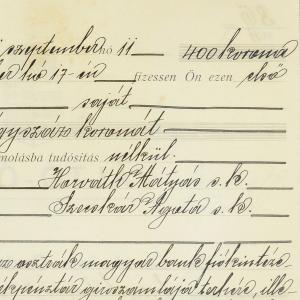 szeptember hó 11 400 korona
hó 17-én fizessen Ön ezen első
saját
gyszáz koronát
molásba tudósitás nélkül.
Horváth Mátyás s. k.
Szecskár Ágota s. k.
osztrák magyar bank fiókintéze
ékpénztár giroszámlája terhére, ille